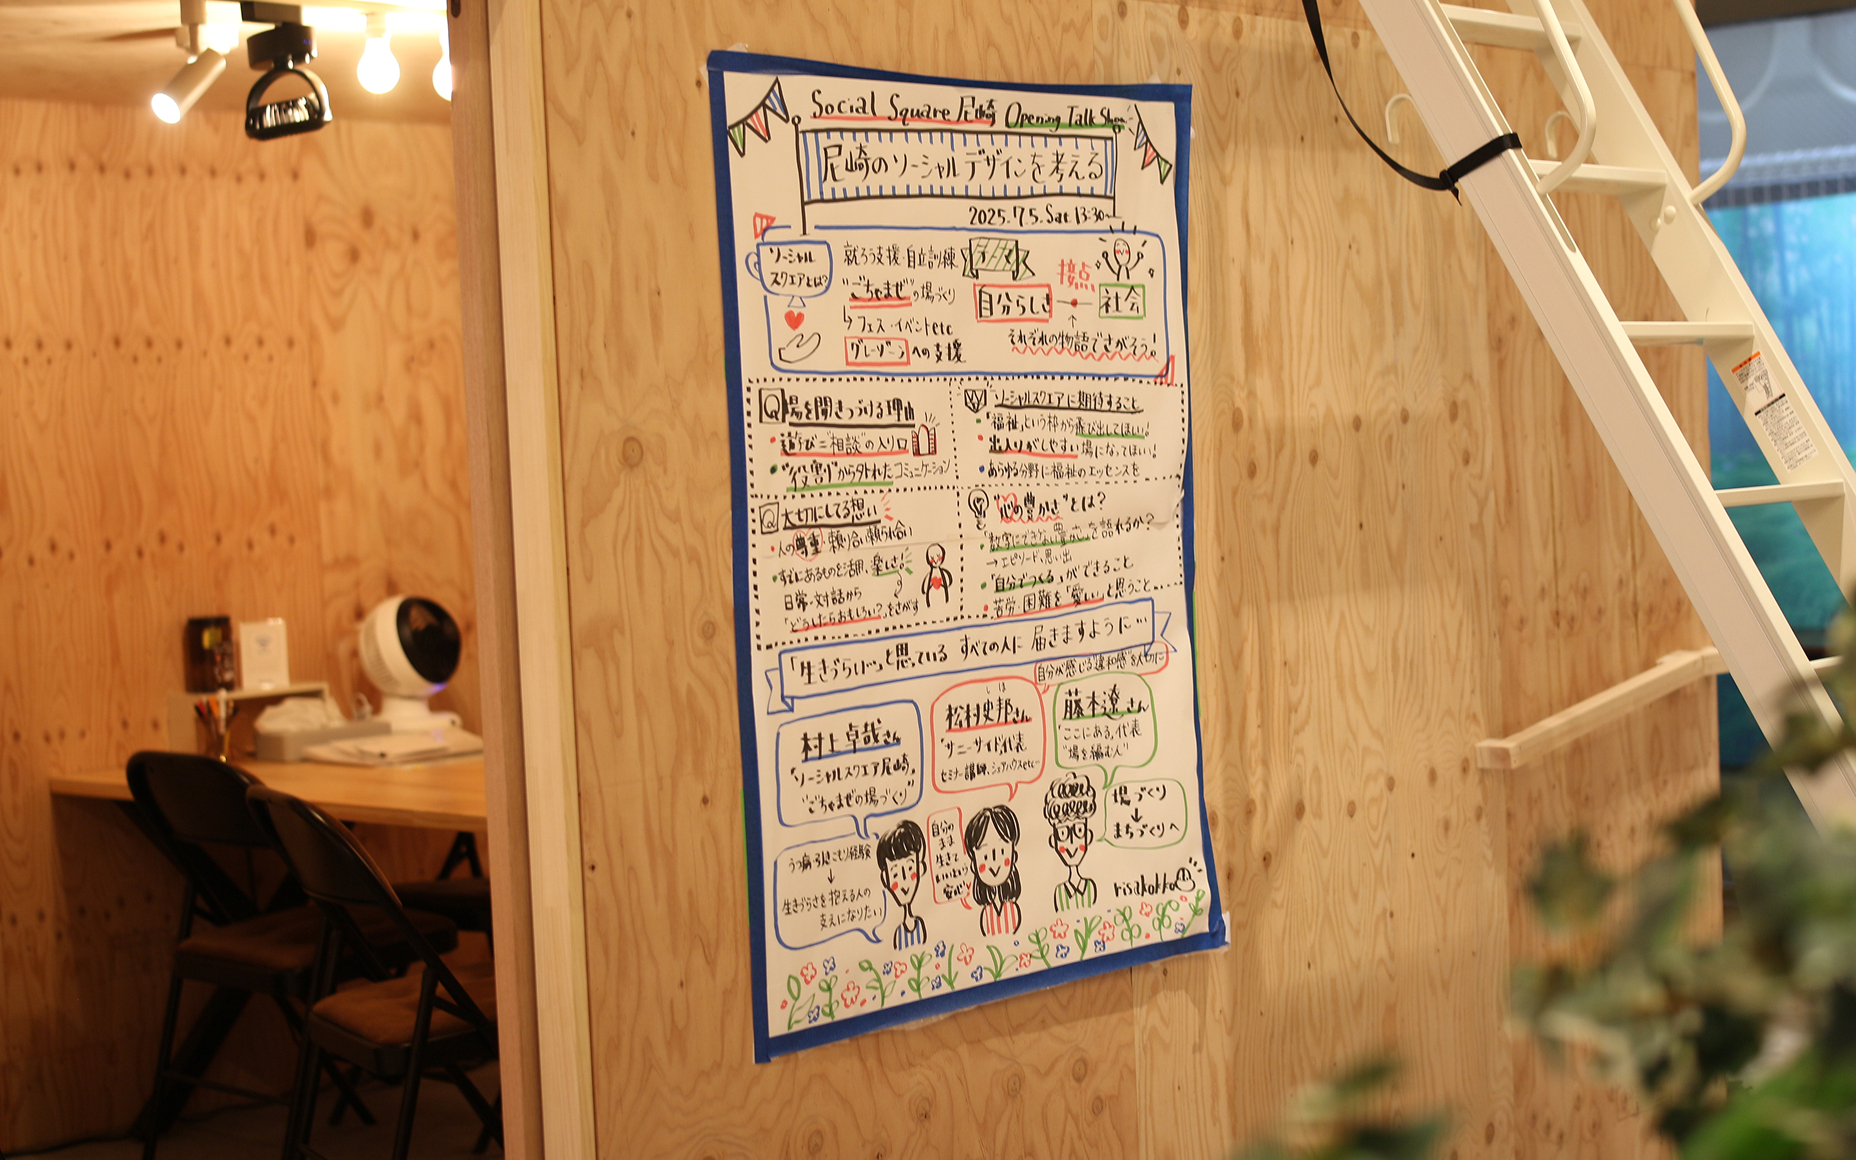 Social Square 尼崎 Opening Talk Show
尼崎のソーシャルデザインを考える
2025.7.5.Sat 13:30~
ソーシャル
スクエアとは?
就ろう支援・自立訓練
"ごちゃまぜ"の場づくり
↳フェス・イベントetc
グレーゾーンへの支援
接点
自分らしさ
社会
↑
それぞれの物語でさがそう!
Q 場を開きつづける理由
・遊び=“相談”の入り口
・“役割”から外れたコミュニケーション
ソーシャルスクエアに期待すること
・「福祉」という枠から飛び出してほしい!
・出入りがしやすい場になってほしい!
・あらゆる分野に福祉のエッセンスを
Q 大切にしてる想い
・人の尊重・頼り合い頼られ合い
・すでにあるものを活用、楽しさ!
日常・対話から
「どうしたらおもしろい?」をさがす
"心の豊かさ"とは?
・「数字にできない豊かさ」を語れるか?
→エピソード、思い出
・「自分でつくる」ができること
・苦労・困難を「愛しい」と思うこと
「生きづらい…」と思っている すべての人に 届きますように…
自分が感じる“違和感”を大切に
村上卓哉さん
「ソーシャルスクエア尼崎」
"ごちゃまぜの場づくり"
しほ
松村史邦さん
「サニーサイド」代表
セミナー講師、シェアハウスetc…
藤本遼さん
「ここにある」代表
"場を編む人"
うつ病・引きこもり経験
↓
生きづらさを抱える人の
支えになりたい
自分の
まま
生きて
いいという
安心
場づくり
↓
まちづくりへ
risakokko